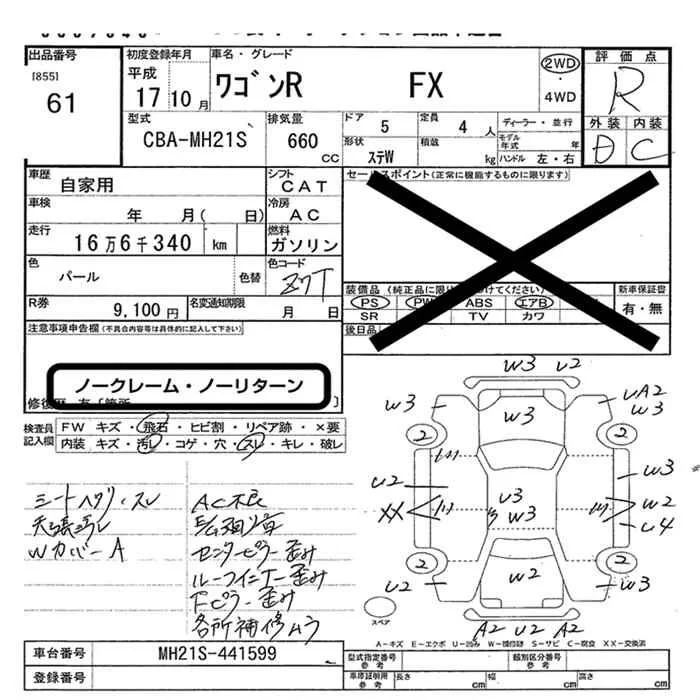 出品番号
[855]
61
初度登録年月
平成
17 10 月
車名・グレード
ワゴンR FX
2WD
・
4WD
評価点
R
外装 内装
D C
型式
CBA-MH21S
排気量
660
CC
ドア 5
定員 4 人
ディーラー・並行
モデル年式 年
形状
ステW
積載
kg
ハンドル 左・右
車歴
自家用
シフト
CAT
セールスポイント(正常に機能するものに限ります)
車検
年 月( 日)
冷房
AC
走行
16万6千340 km
燃料
ガソリン
色
パール
色替
色コード
Z7T
装備品
PS PW ABS エアB
SR TV カワ
新車保証書
有・無
R券
9,100円
名変通知期限
月 日
後日品
注意事項申告欄(不具合内容等は具体的に記入して下さい)
ノークレーム・ノーリターン
検査員
記入欄
FW キズ・飛石・ヒビ割・リペア跡・×要
内装 キズ・汚レ・コゲ・穴・スレ・キレ・破レ
シートヘタリ・スレ
Wカバー A
AC不良
センターピラー歪み
ルーフインナー歪み
Fピラー歪み
各所補修ムラ
W3 U2
W3 W3 UA2
W3
2 2
U2 W3
XX U3 W2
W3 U4
2 2
U2 W2 W3
スペア
A2 U2 A2
A-キズ E-エクボ U-凹み W-補修跡 S-サビ C-腐食 XX-交換済
車台番号
MH21S-441599
登録番号
型式指定番号
参考
類別区分番号
参考
車庫証明用
参考
長さ cm
幅 cm
高さ cm